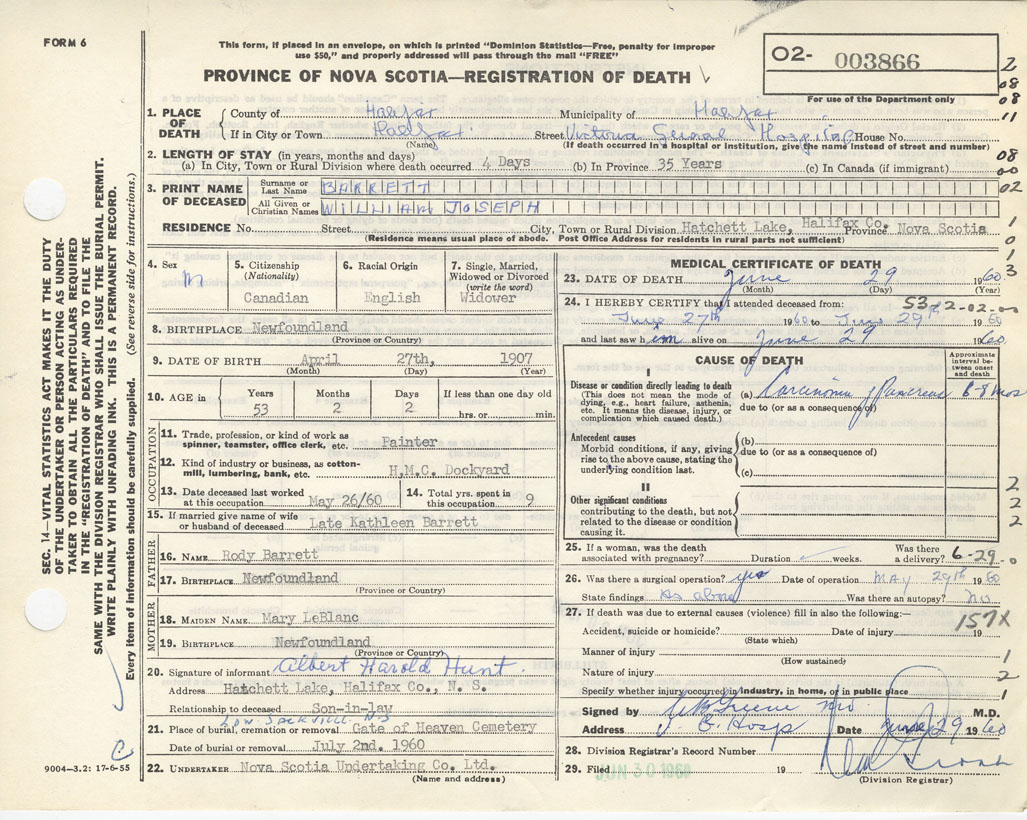 FORM 6
This form, if placed in an envelope, on which is printed "Dominion Statistics—Free, penalty for improper
use $50," and properly addressed will pass through the mail "FREE"
PROVINCE OF NOVA SCOTIA—REGISTRATION OF DEATH
O2- 003866
For use of the Department only
2
08
08
11
08
00
02
1
0
1
3
SEC. 14—VITAL STATISTICS ACT MAKES IT THE DUTY
OF THE UNDERTAKER OR PERSON ACTING AS UNDER-
TAKER TO OBTAIN ALL THE PARTICULARS REQUIRED
IN THE "REGISTRATION OF DEATH" AND TO FILE THE
SAME WITH THE DIVISION REGISTRAR WHO SHALL ISSUE THE BURIAL PERMIT.
WRITE PLAINLY WITH UNFADING INK. THIS IS A PERMANENT RECORD.
Every item of information should be carefully supplied. (See reverse side for instructions.)
1. PLACE OF DEATH
County of Halifax Municipality of Halifax
If in City or Town Halifax Street Victoria General Hospital House No.
(Name) (If death occurred in a hospital or institution, give the name instead of street and number)
2. LENGTH OF STAY (in years, months and days)
(a) In City, Town or Rural Division where death occurred 4 Days (b) In Province 35 Years (c) In Canada (if immigrant)
3. PRINT NAME OF DECEASED
Surname or Last Name BARRETT
All Given or Christian Names WILLIAM JOSEPH
RESIDENCE No. Street City, Town or Rural Division Hatchett Lake, Halifax Co. Province Nova Scotia
(Residence means usual place of abode. Post Office Address for residents in rural parts not sufficient)
4. Sex M
5. Citizenship (Nationality) Canadian
6. Racial Origin English
7. Single, Married, Widowed or Divorced (write the word) Widower
8. BIRTHPLACE Newfoundland
(Province or Country)
9. DATE OF BIRTH April 27th, 1907
(Month) (Day) (Year)
10. AGE IN Years 53 Months 2 Days 2 If less than one day old hrs. or min.
OCCUPATION
11. Trade, profession, or kind of work as spinner, teamster, office clerk, etc. Painter
12. Kind of industry or business, as cotton-mill, lumbering, bank, etc. H.M.C. Dockyard
13. Date deceased last worked at this occupation May 26/60
14. Total yrs. spent in this occupation 9
15. If married give name of wife or husband of deceased Late Kathleen Barrett
FATHER
16. NAME Rody Barrett
17. BIRTHPLACE Newfoundland
(Province or Country)
MOTHER
18. MAIDEN NAME Mary LeBlanc
19. BIRTHPLACE Newfoundland
(Province or Country)
20. Signature of informant Albert Harold Hunt.
Address Hatchett Lake, Halifax Co., N. S.
Relationship to deceased Son-in-law
LOW. SACKVILLE N-S
21. Place of burial, cremation or removal Gate of Heaven Cemetery
Date of burial or removal July 2nd. 1960
22. UNDERTAKER Nova Scotia Undertaking Co. Ltd.
(Name and address)
9004—3.2: 17-6-55
MEDICAL CERTIFICATE OF DEATH
23. DATE OF DEATH June 29 1960
(Month) (Day) (Year)
24. I HEREBY CERTIFY that I attended deceased from:
June 27th 1960 to June 29th 1960
and last saw him alive on June 29 1960
CAUSE OF DEATH
Approximate interval between onset and death
I
Disease or condition directly leading to death
(This does not mean the mode of dying, e.g., heart failure, asthenia, etc. It means the disease, injury, or complication which caused death.)
(a) Carcinoma of Pancreas 6-8 mos
due to (or as a consequence of)
Antecedent causes
Morbid conditions, if any, giving rise to the above cause, stating the underlying condition last.
(b)
due to (or as a consequence of)
(c)
II
Other significant conditions
contributing to the death, but not related to the disease or condition causing it.
2
2
2
25. If a woman, was the death associated with pregnancy? Duration weeks. Was there a delivery? 6-29-0
26. Was there a surgical operation? yes Date of operation MAY 29th 1960
State findings As above Was there an autopsy? No
27. If death was due to external causes (violence) fill in also the following:—
157X
Accident, suicide or homicide? Date of injury 19
(State which)
Manner of injury 1
(How sustained)
Nature of injury 2
Specify whether injury occurred in industry, in home, or in public place 1
Signed by M.D.
Address Date June 29 1960
28. Division Registrar's Record Number
29. Filed JUN 30 1960 19
(Division Registrar)